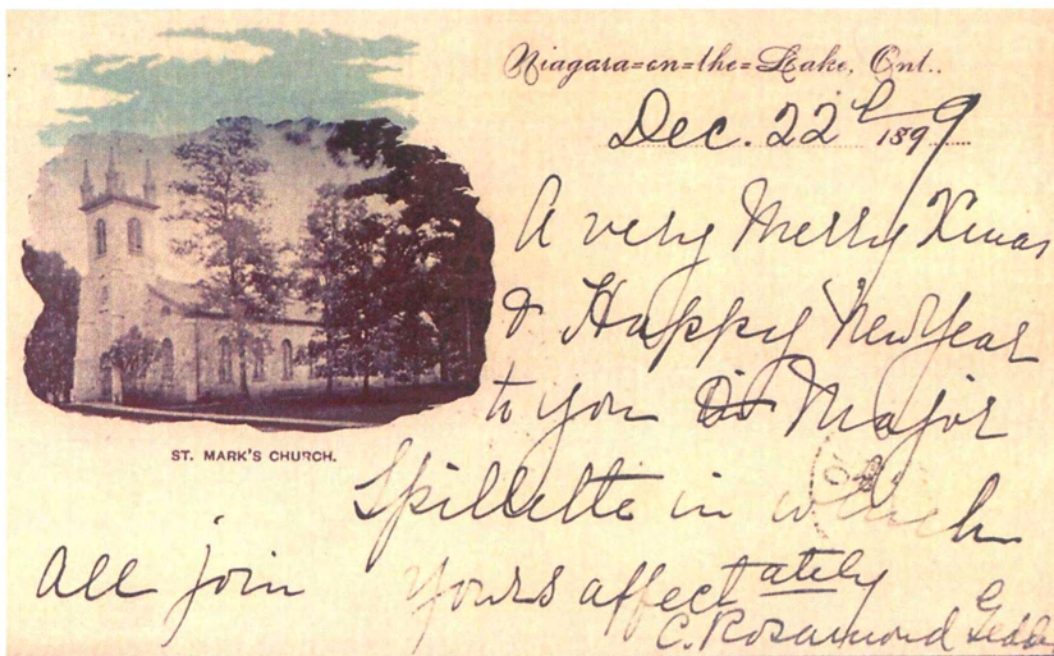 Niagara=on=the=Lake, Ont..
Dec. 22d 1899
A very Merry Xmas
& Happy New Year
to you Major
Spillette in which
all join
Yours affectately
C. Rosamond Geddes
ST. MARK'S CHURCH.